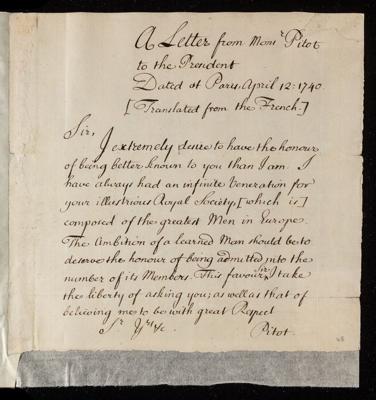 A Letter from Monr Pitot
to the President
Dated at Paris April 12: 1740.
[Translated from the French.]
Sir,
I extremely desire to have the honour
of being better known to you than I am. I
have always had an infinite Veneration for
your illustrious Royal Society, [which is]
composed of the greatest Men in Europe.
The Ambition of a learned Man should be to
deserve the honour of being admitted into the
number of its Members. This favour Sir I take
the liberty of asking you; as well as that of
believing me to be with great Respect
Sr Yrs &c
Pitot.